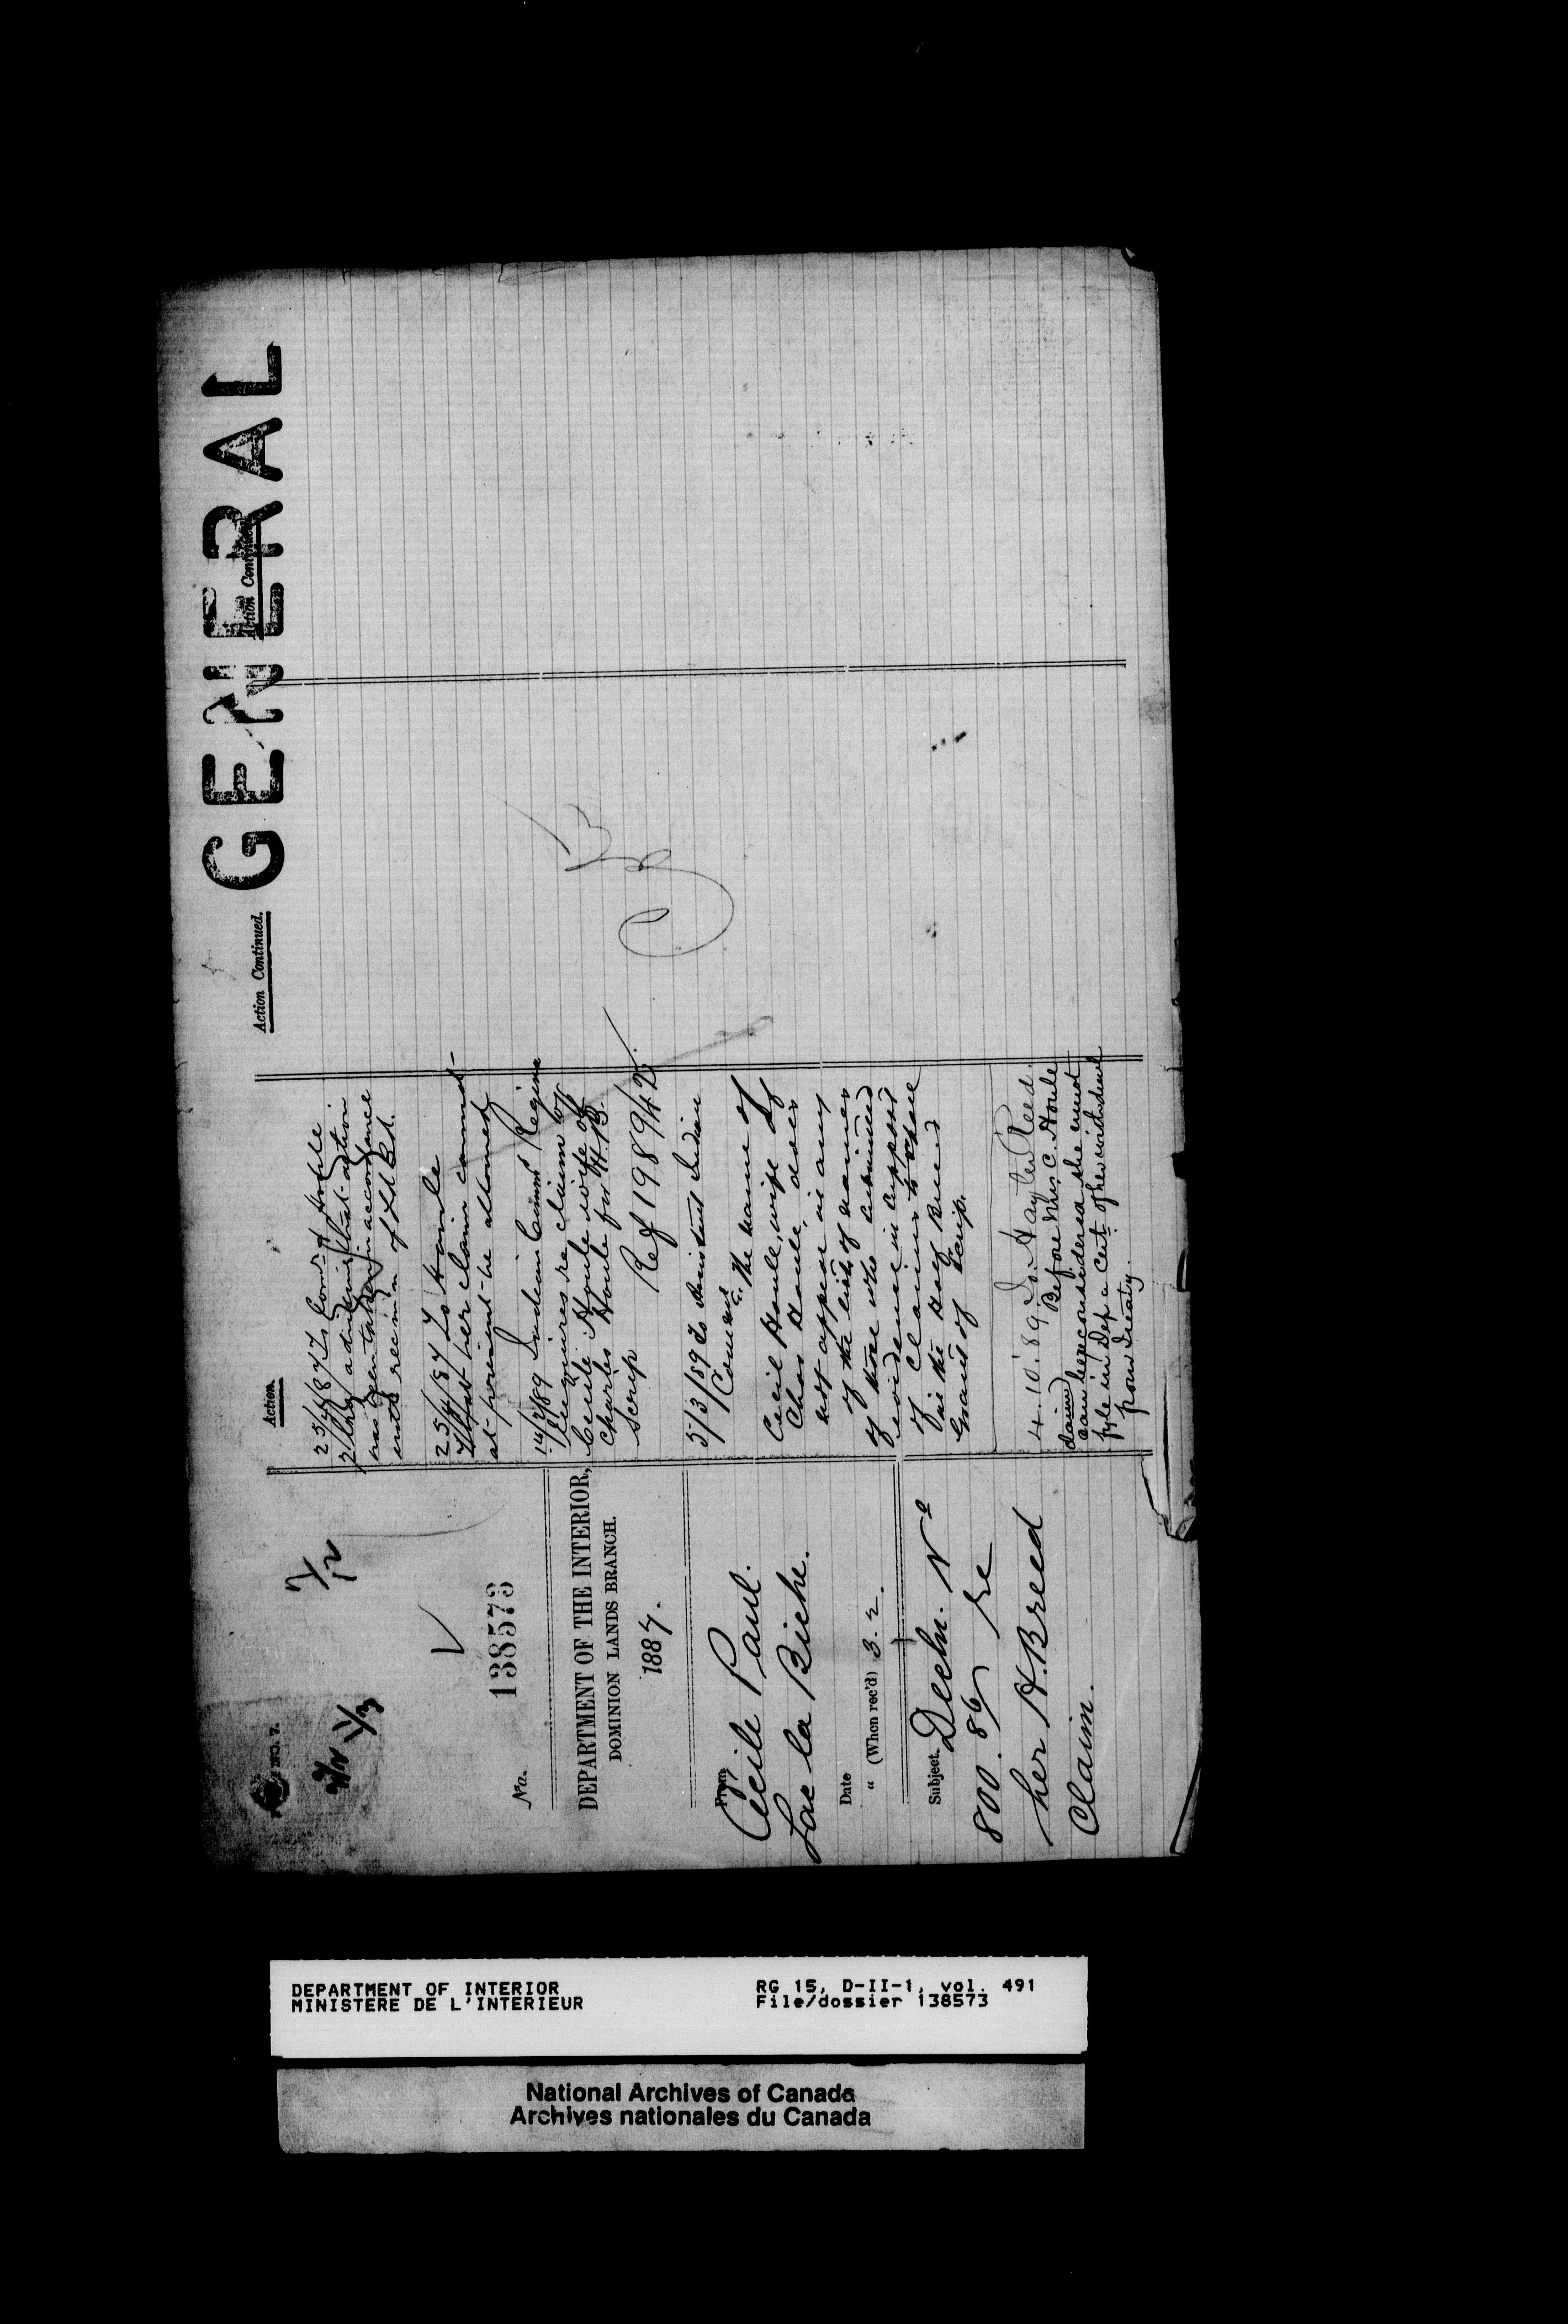 GENERAL
NO. 7.
No.
138573
DEPARTMENT OF THE INTERIOR,
DOMINION LANDS BRANCH.
1887.
From
Cecile Paul.
Lac la Biche.
Date
" (When rec'd) 3.2.
Subject. Decln. No
800. 86 re
her H. Breed
Claim.
Action.
23/4/87 To
advising that action
has been taken in accordance
with
25/4/87 To Houle
That her claim cannot
at present be allowed
14/2/89 Indian Commr Regina
Enquires re claim of
Cecile Houle wife of
Charles Houle for H.B.
Scrip
Ref 198942
5/3/89 To Assistant Indian
Commr. The name of
Cecil Houle, wife of
Chas Houle, does
not appear in any
of the lists of names
of those who submitted
evidence in support
of claims to share
in the Half Breed
Grant of Scrip.
4.10.89. To. Hayter Reed.
Before Mrs. C. Houle
claim
can be reconsidered she must
fyle in Dep a Cert of her withdrawal
from Treaty.
Action Continued.
Action Continued.
DEPARTMENT OF INTERIOR
MINISTERE DE L'INTERIEUR
RG 15, D-II-1, vol. 491
File/dossier 138573
National Archives of Canada
Archives nationales du Canada